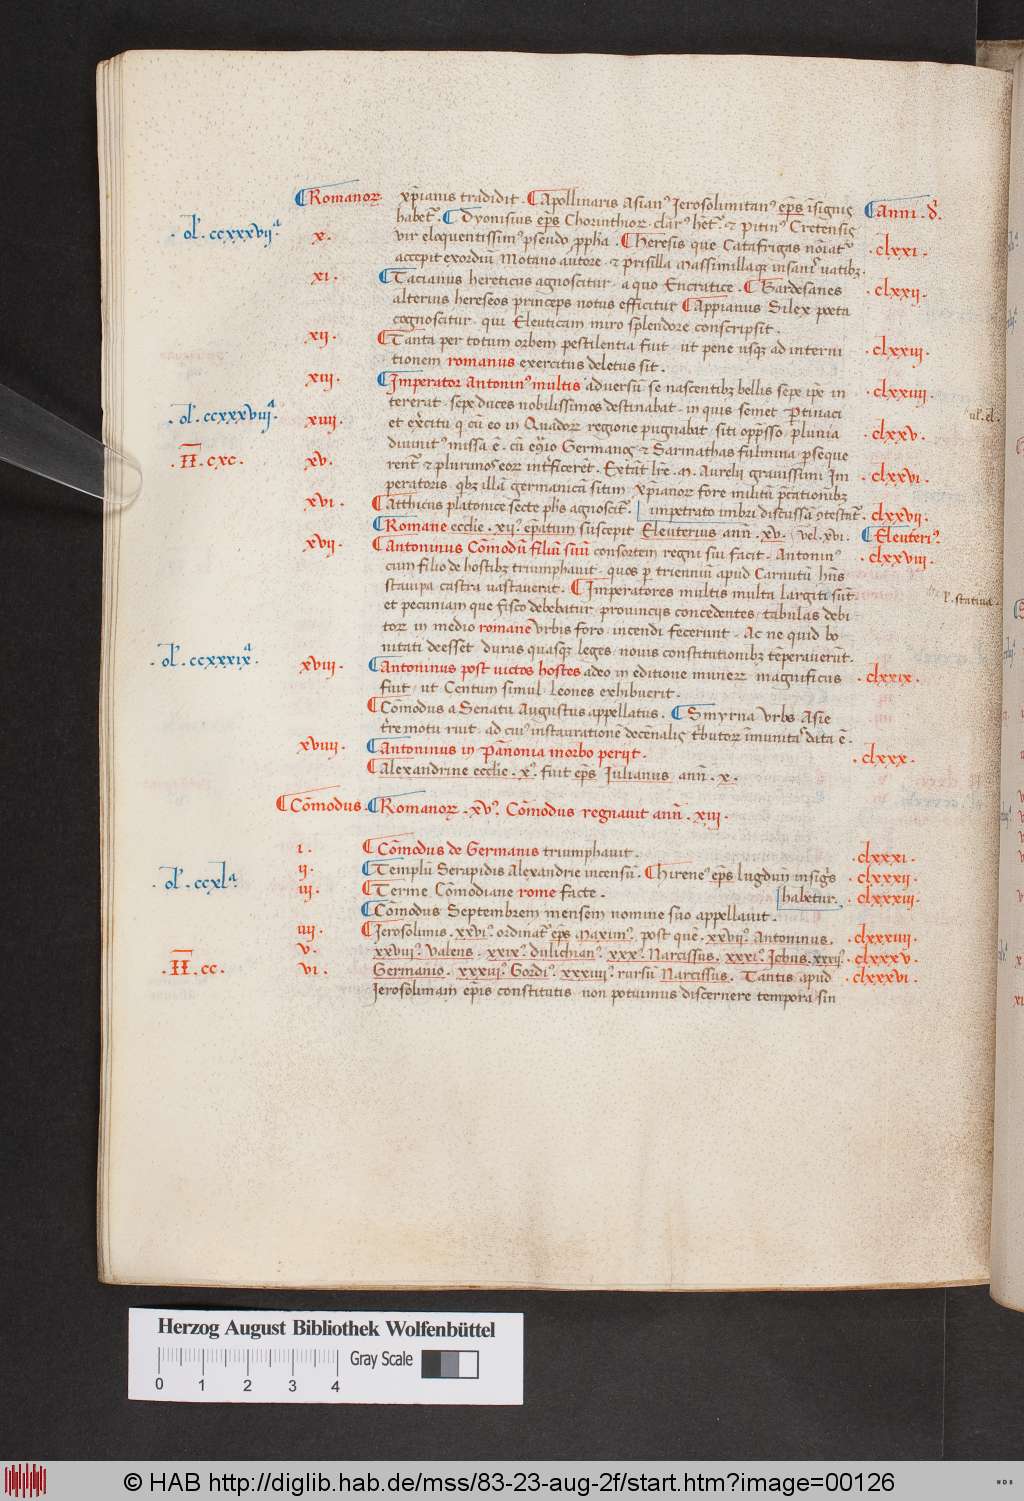 Romanoꝝ xp̄ianis tradidit. Apollinaris Asianꝰ Ierosolimitanꝰ ep̄s isignis Anni. d̄.
.ol̓. ccxxxvii.ª habet̄. Dyonisius ep̄s Chorinthioꝝ. clarꝰ h̄et̄. & pitinꝰ Cretensis
.x. vir eloquentissimꝰ pseudo ꝓpha. Heresis que Catafrigas noīatᷣ .clxxi.
accepit exordiū Motano autore. & prisilla Massimillaqꝫ insanis vatibꝫ.
xi. Tacianus hereticus agnoscitur. a quo Encratice. Bardesanes .clxxii.
alterius hereseos princeps notus efficitur Appianus Silex poeta
cognoscitur. qui Eleuticam miro splendore conscripsit.
xii. Tanta per totum orbem pestilentia fuit. ut pene usqꝫ ad interni .clxxiii.
tionem romanus exercitus deletus sit.
xiii. Imperator Antoninꝰ multis adversū se nascentibꝫ bellis sepe ip̄e in .clxxiiii.
.ol̓. ccxxxviii.ª tererat. sepe duces nobilissimos destinabat. in quis semet Ptinaci
xiiii. et exc̄itu q̄ cū eo in Quadoꝝ regione pugnabat siti opp̄sso pluvia .clxxv.
.II. cxc. divinitꝰ missa ē. cū eꝯio Germanos & Sarmathas fulmina ꝑseque
xv. rent̄ & plurimos eoꝝ int̄ficerēt. Extāt lr̄e .M. Aurelii gravissimi Im .clxxvi.
peratoris. qbꝫ illā germanicā sitim. xp̄ianoꝝ fore militū p̄cationibꝫ
xvi. Atthicus platonice secte ph̄s agnoscit̄. impetrato imbri discussā ꝯtestat̄. clxxvii.
Romane ecclīe .xii. ep̄atum suscepit Eleuterius ann̄. xv. vel .xvi. Eleuteriꝰ.
xvii. Antoninus Cōmodū filiū suū consortem regni sui facit. Antoninꝰ . clxxviii.
cum filio de hostibꝫ triumphavit. quos ꝑ trienniū apud Carnutū hn̄s
stauipa castra vastaverat. Imperatores multis multa largiti sūt l̓. stativa.
et pecuniam que fisco debebatur. provinciis concedentes. tabulas debi
toꝝ in medio romane urbis foro. incendi fecerunt. Ac ne quid bo
.ol̓. ccxxxix.ª nitati deesset duras quasqꝫ leges. novis constitutionibꝫ tēperaverūt.
xviii. Antoninus post victos hostes adeo in editione muneꝝ magnificus .clxxix.
fuit. ut Centum simul leones exhibuerit.
Cōmodus a Senatu Augustus appellatus. Smyrna urbs Asie
t̄remotu ruit. ad cuiꝰ instaurationē decēnalis t̄butoꝝ īmunitas data ē.
xviiii. Antoninus in Pānonia morbo periit. .clxxx.
Alexandrine ecclīe .xꝰ. fuit ep̄s Iulianus ann̄. x.
Cōmodus. Romanoꝝ .xvꝰ. Cōmodus regnavit ann̄. xiii.
i. Cōmodus de Germanis triumphavit. .clxxxi.
ii. Templū Serapidis Alexandrie incensū. Hireneꝰ ep̄s lugduni insigs̄ .clxxxii.
.ol̓. ccxl.ª iii. Terme Cōmodiane rome facte. habetur. .clxxxiii.
Cōmodus Septembrem mensem nomine suo appellavit.
iiii. Ierosolimis. xxviꝰ. ordinat̄ ep̄s Maximꝰ. post quē. xxviiꝰ. Antoninus. .clxxxiiii.
v. xxviiiꝰ. Valens. xxixꝰ. dulichianꝰ. xxxꝰ. Narcissus. xxxiꝰ. Ichus. xxxiiꝰ. .clxxxv.
.II. cc. vi. Germanio. xxxiiiꝰ. Gordiꝰ. xxxiiiiꝰ. rursū Narcissus. Tantis apud .clxxxvi.
Ierosolimam ep̄is constitutis. non potuimus discernere tempora sin
ul. el.
Herzog August Bibliothek Wolfenbüttel
Gray Scale
0 1 2 3 4
© HAB http://diglib.hab.de/mss/83-23-aug-2f/start.htm?image=00126